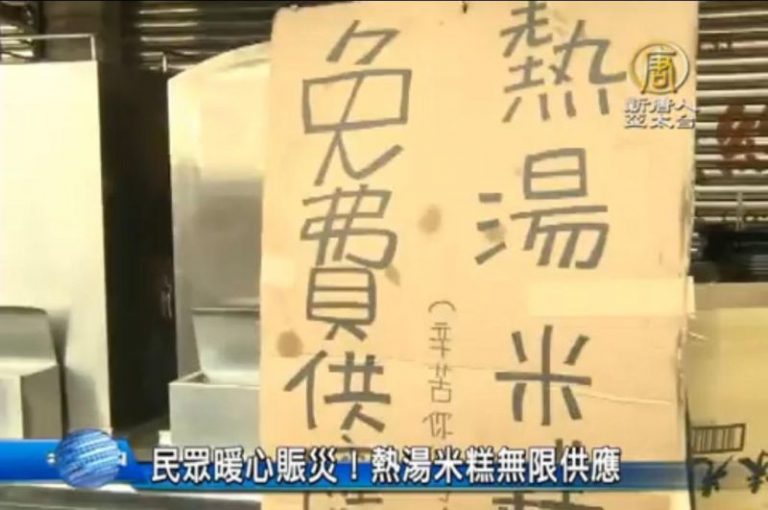 熱湯米糕
免費供應
(辛苦你
新唐人
亞太台
民眾暖心賑災！熱湯米糕無限供應